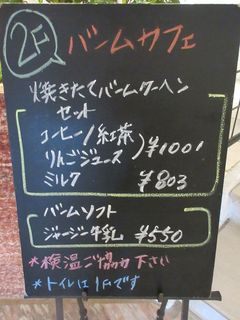 2F
バームカフェ
焼きたてバームクーヘン
セット
コーヒー/紅茶
りんごジュース ¥1001
ミルク ¥803
バームソフト
ジャージー牛乳 ¥550
*検温ご協力下さい
*トイレは1Fです